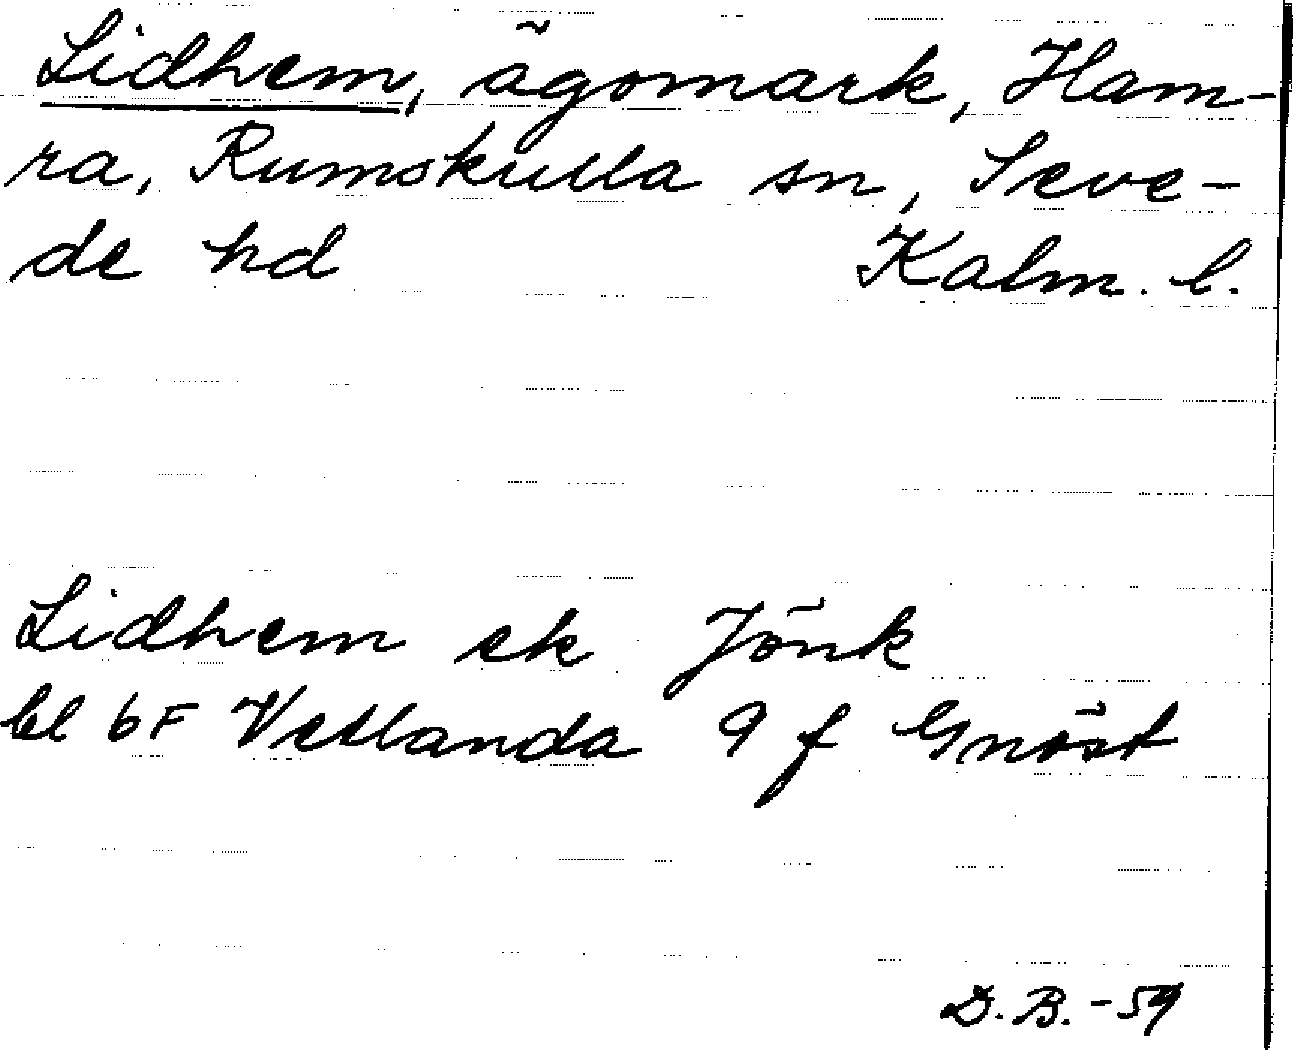 Lidhem, ägomark, Ham-
ra, Rumskulla sn, Seve-
de hd Kalm. l.
Lidhem ek Jönk
bl 6F Vetlanda 9 f Gnöst
D.B. -59